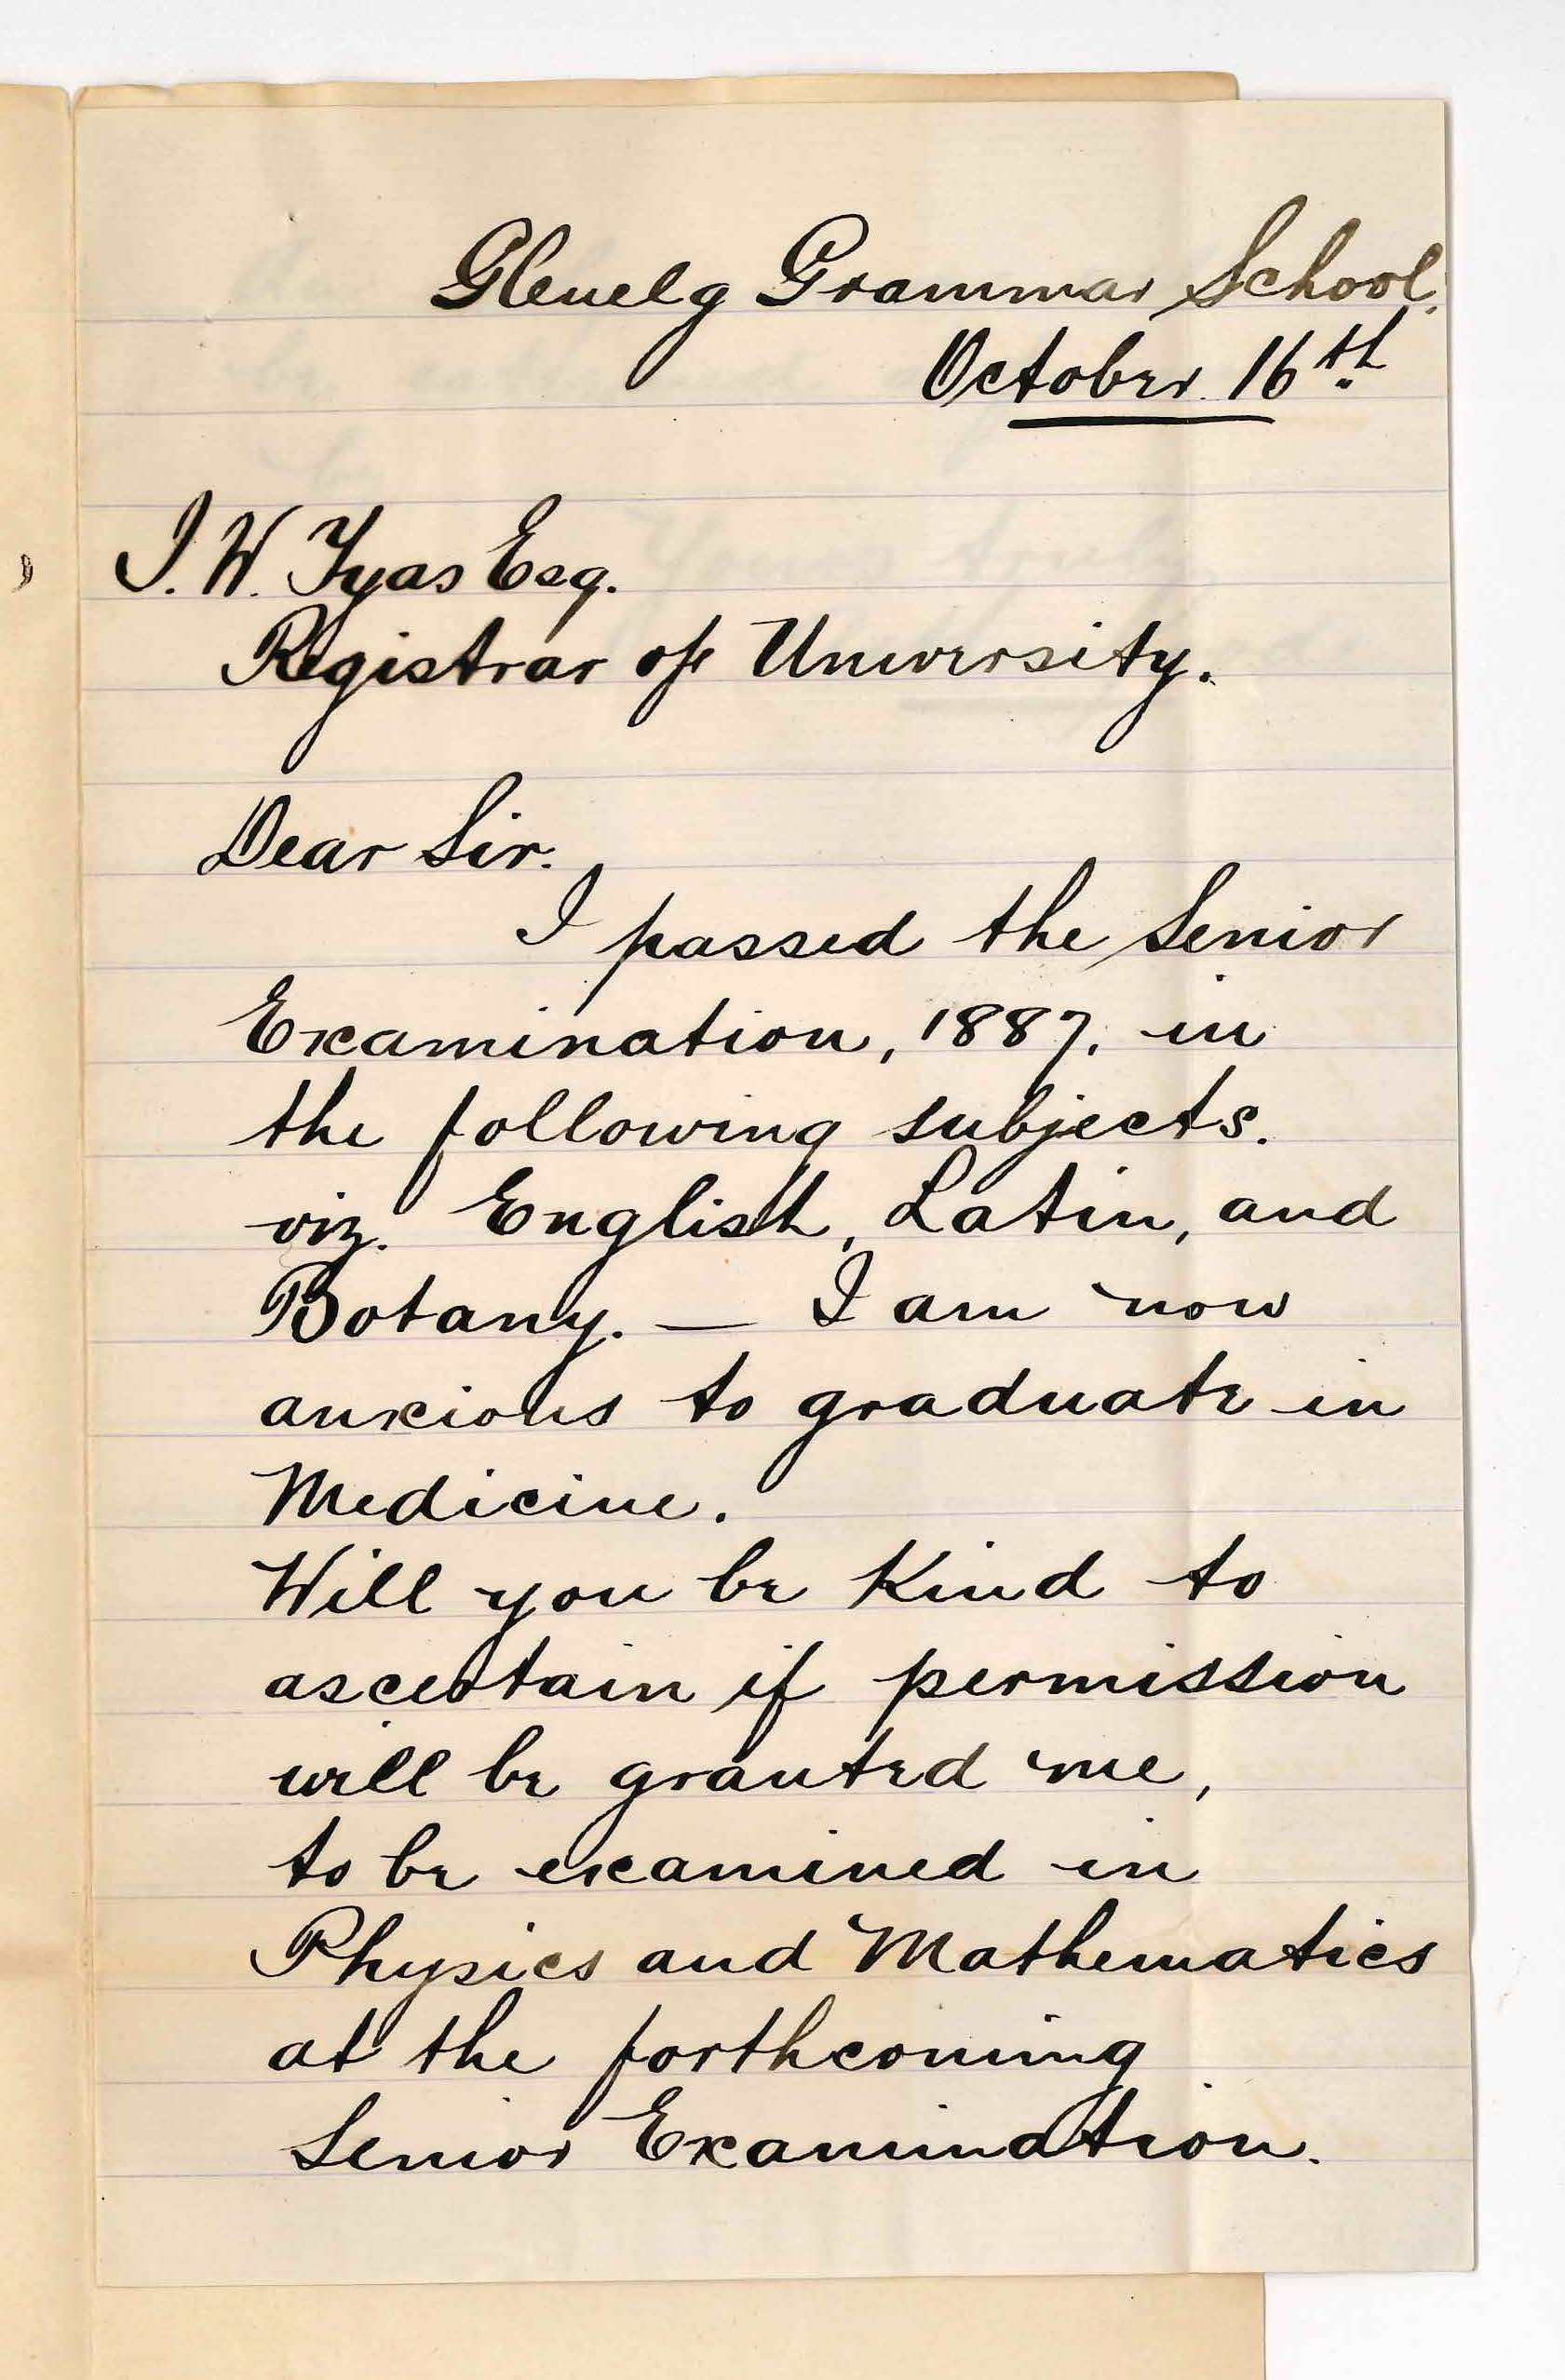 Glenelg Grammar School.
October 16th.
J. W. Tyas Esq.
Registrar of University.
Dear Sir.
I passed the Senior
Examination, 1887, in
the following subjects.
viz. English, Latin, and
Botany. — I am now
anxious to graduate in
Medicine.
Will you be kind to
ascertain if permission
will be granted me,
to be examined in
Physics and Mathematics
at the forthcoming
Senior Examination.